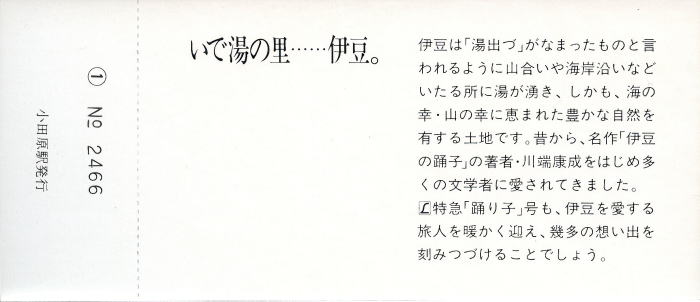 いで湯の里……伊豆。
伊豆は「湯出づ」がなまったものと言
われるように山合いや海岸沿いなど
いたる所に湯が湧き、しかも、海の
幸・山の幸に恵まれた豊かな自然を
有する土地です。昔から、名作「伊豆
の踊子」の著者・川端康成をはじめ多
くの文学者に愛されてきました。
L特急「踊り子」号も、伊豆を愛する
旅人を暖かく迎え、幾多の想い出を
刻みつづけることでしょう。
① No 2466
小田原駅発行